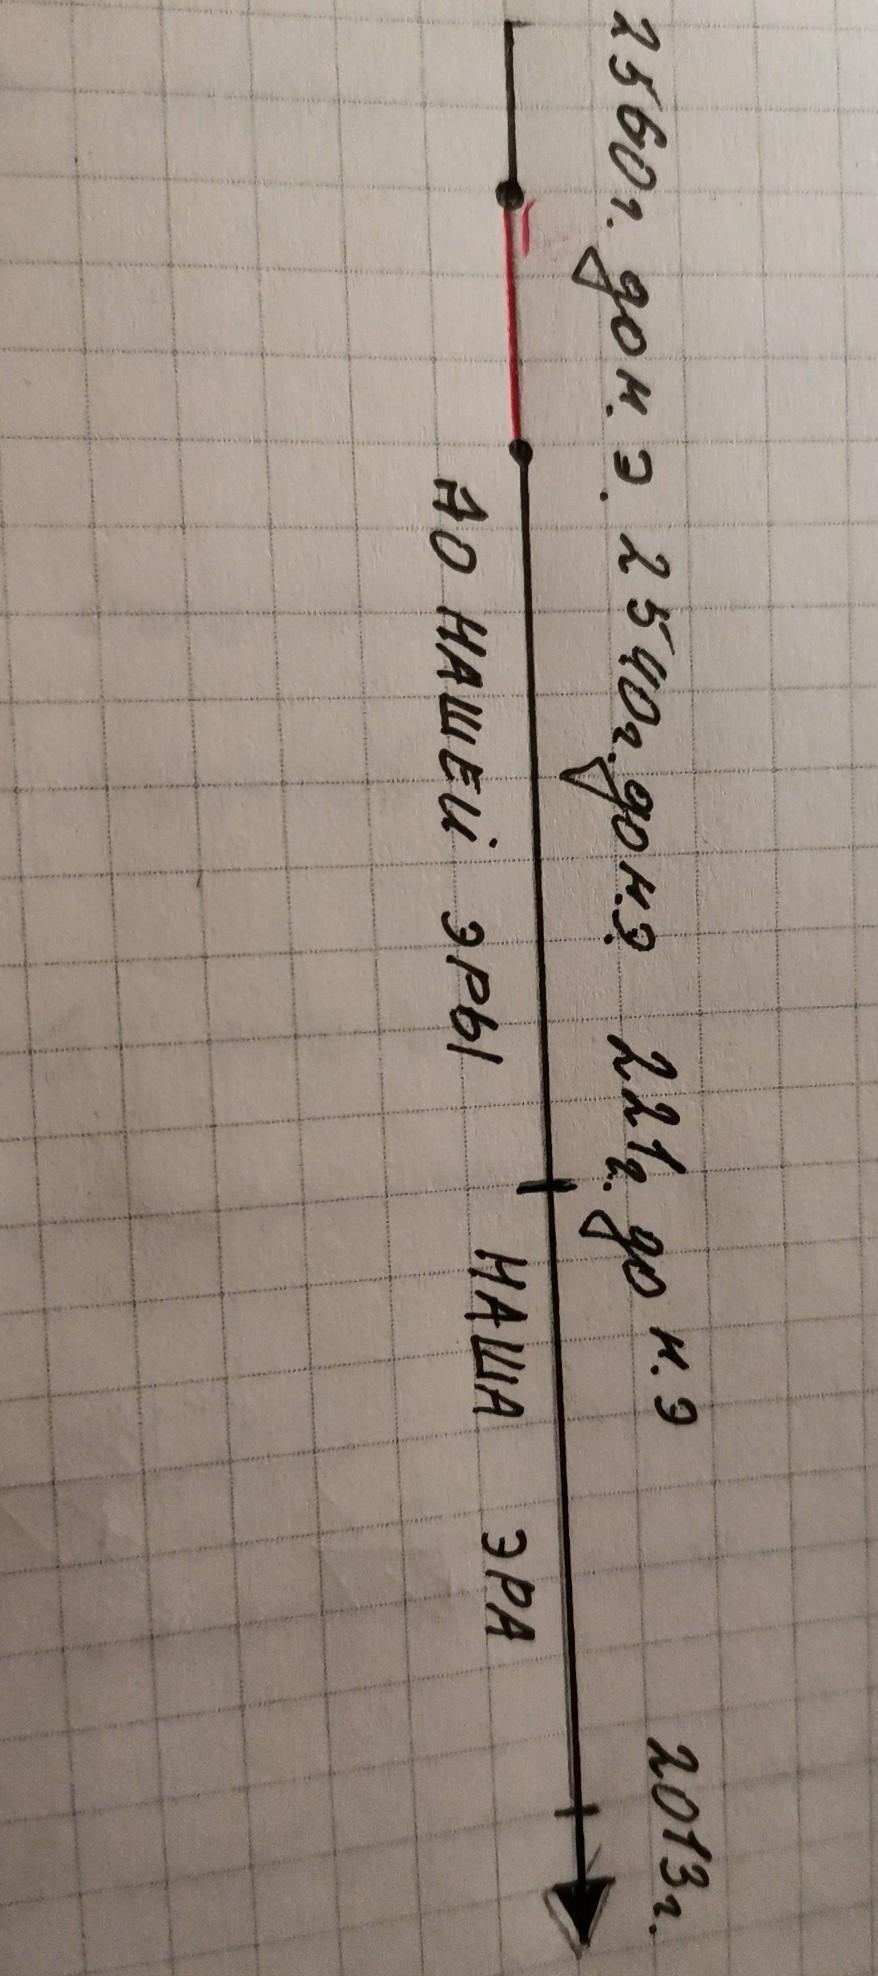 2560г. до н. э. 2540г. до н.э. 221г. до н. э 2013г.
ДО НАШЕЙ ЭРЫ НАША ЭРА